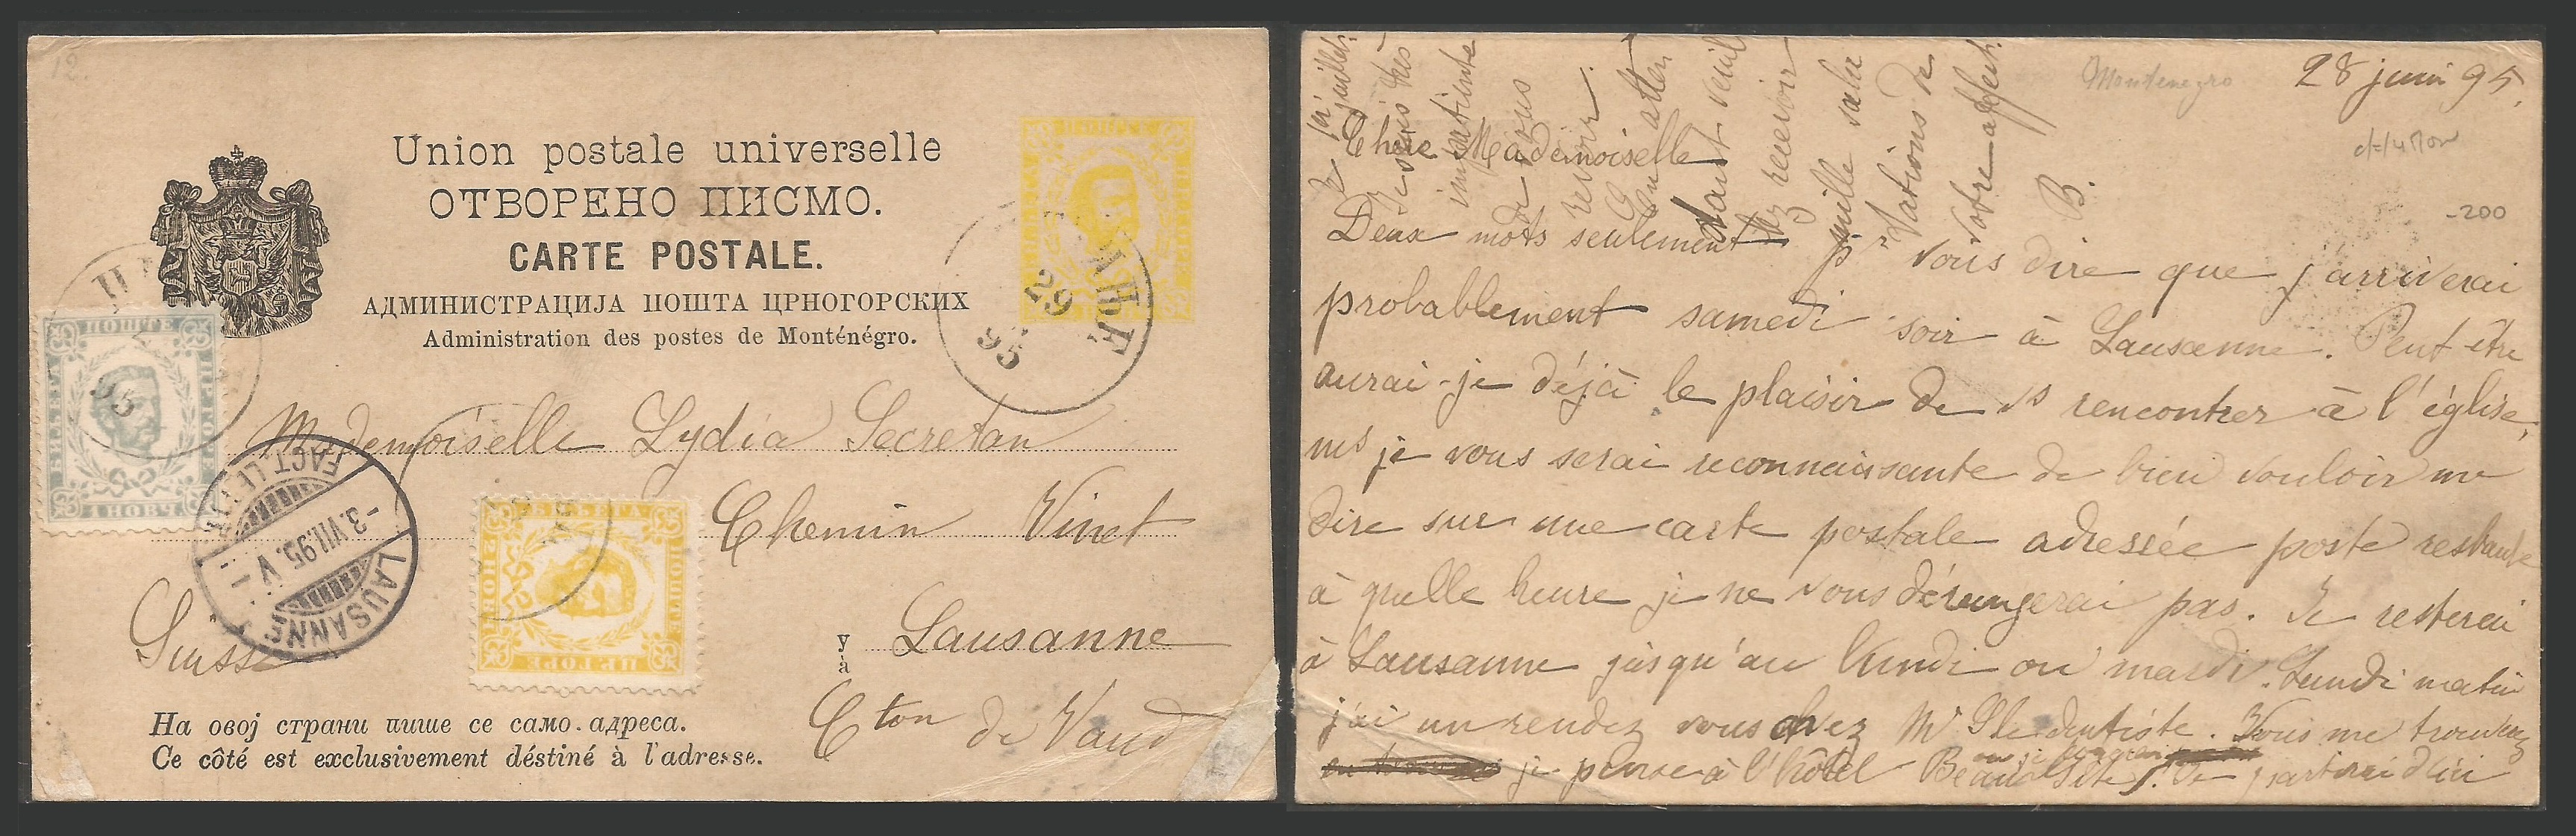 12.
Union postale universelle
ОТВОРЕНО ПИСМО.
CARTE POSTALE.
АДМИНИСТРАЦИЈА ПОШТА ЦРНОГОРСКИХ
Administration des postes de Monténégro.
ПОШТЕ
ЦР.ГОРЕ
1 НОВЧ.
БИЉЕГА
95
29
95
Mademoiselle Lydia Secretan
Chemin Vinet
у
à
Lausanne
Suisse
Cton de Vaud
LAUSANNE
-3.VII.95.V-
FACT. LETT
БИЉЕГА
ПОШТЕ
ЦР.ГОРЕ
2 НОВЧ.
На овој страни пише се само адреса.
Ce côté est exclusivement déstiné à l'adresse.
Montenegro
28 juin 95.
-200
Chère Mademoiselle
Deux mots seulement pr vous dire que j'arriverai
probablement samedi soir à Lausanne. Peut-être
aurai-je déjà le plaisir de vs rencontrer à l'église,
ms je vous serai reconnaissante de bien vouloir me
dire sur une carte postale adressée poste restante
à quelle heure je ne vous dérangerai pas. Je resterai
à Lausanne jusqu'au lundi ou mardi. Lundi matin
j'ai un rendez vous chez Mr dentiste. Vous me trouverez
je pense à l'hôtel Beau Site. Je partirai d'ici
le juillet.
Je suis très
impatiente
de vous
revoir.
En atten
dant veuil
lez recevoir
mille salu
tations de
votre affect.
B.